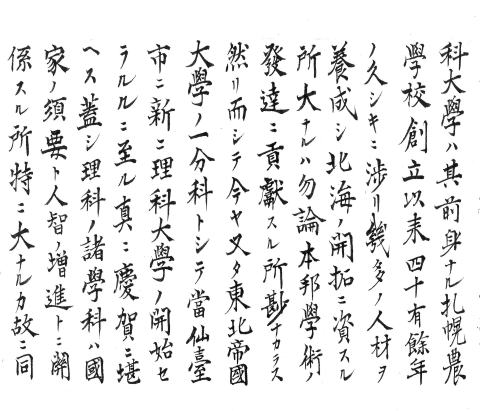 科大學ハ其前身ナル札幌農
學校創立以来四十有餘年
ノ久シキニ渉リ幾多ノ人材ヲ
養成シ北海ノ開拓ニ資スル
所大ナルハ勿論本邦學術ノ
發達ニ貢獻スル所尠ナカラス
然リ而シテ今ヤ又タ東北帝國
大學ノ一分科トシテ當仙臺
市ニ新ニ理科大學ノ開始セ
ラルルニ至ル真ニ慶賀ニ堪
ヘス蓋シ理科ノ諸學科ハ國
家ノ須要ト人智ノ増進トニ關
係スル所特ニ大ナルカ故ニ同